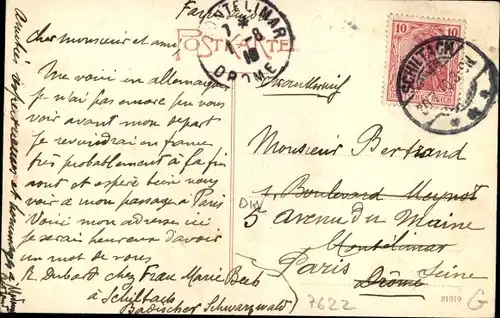 Faire suivre
POSTKARTE
MONTELIMAR
7 * 1 - 8 10
DROME
10 10
DEUTSCHES REICH
SCHILTACH
Cher monsieur et ami,
Me voici en allemagne
je n'ai pas encore pu vous
voir avant mon départ
je reviendrai en france
très probablement à la fin
aout et espère bien vous
voir a mon passage a Paris
Voici mon adresse ici
je serais heureux d'avoir
un mot de vous
R. Dubard chez Frau Marie Beeh
à Schiltach
Badischer Schwarzwald)
Amitiés respectueuses et hommages à
Frankreich
Monsieur Bertrand
1. Boulevard Meynot
5 avenue du Maine
Montélimar
Paris Seine
Drôme
7622
81919
G